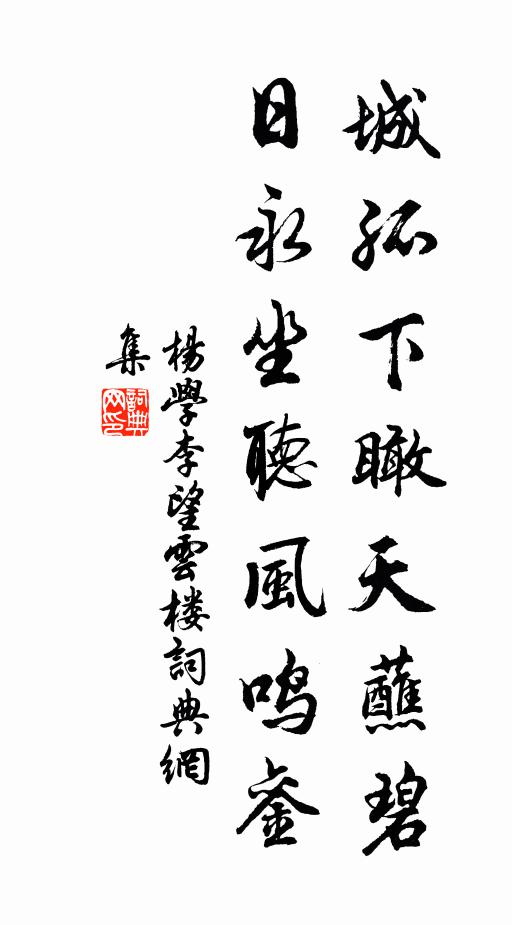 城孤下瞰天蘸碧
日永坐聽風鳴
楊學李望雲楼詞典網
集
詞典
网印